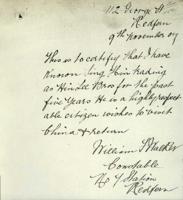 112 George St
Redfern
9th November 09
This is to certify that I have
known Sing Him trading
as Hin Lee Bros for the past
five years He is a highly respect
able citizen wishes to visit
China & return
William
Constable
No 4 Station
Redfern